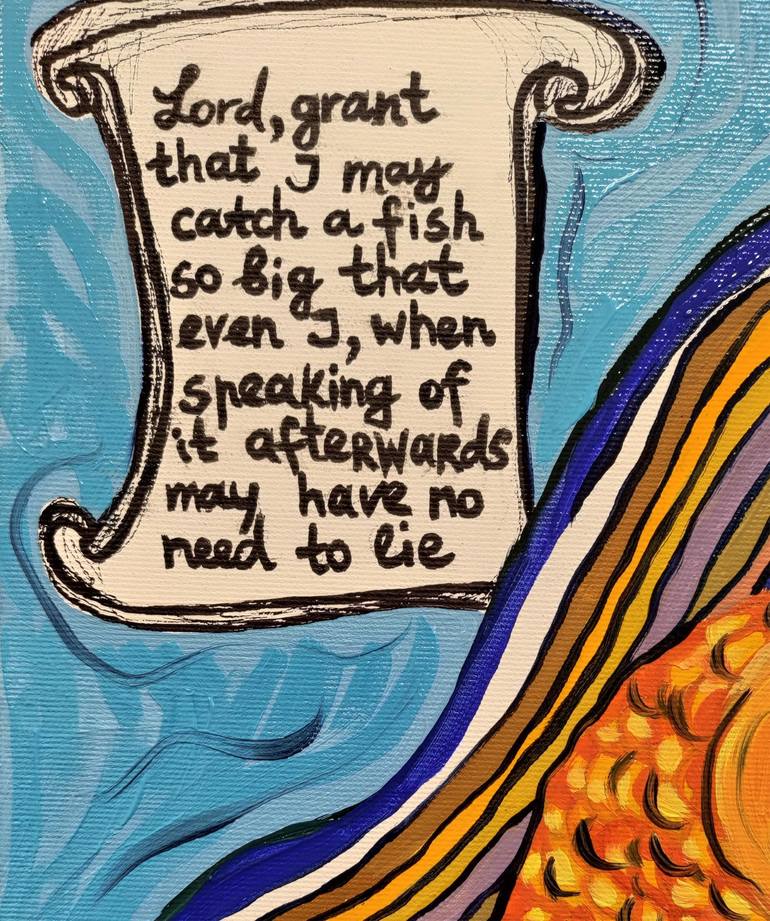 Lord, grant
that I may
catch a fish
so big that
even I, when
speaking of
it afterwards
may have no
need to lie